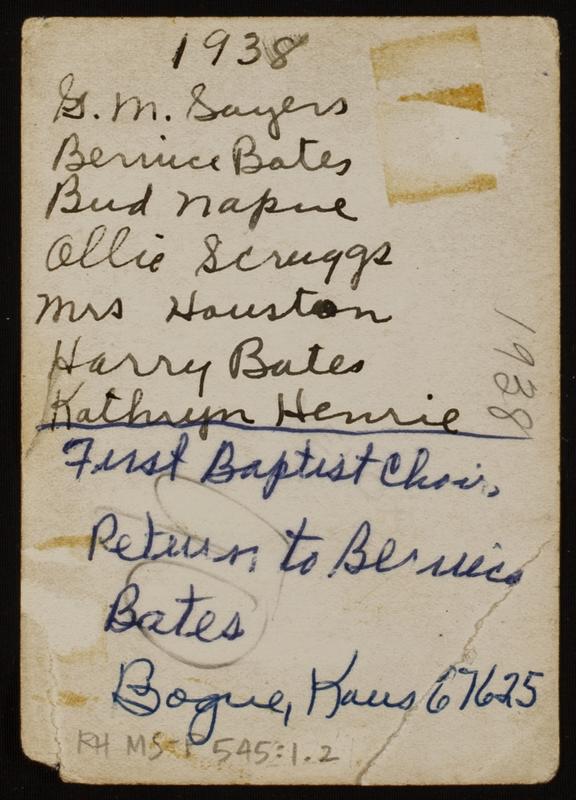 1938
G. M. Sayers
Bernice Bates
Bud Napue
Ollie Scruggs
Mrs Houston
Harry Bates
Kathryn Henrie
First Baptist Choir,
Return to Bernice
Bates
Bogue, Kans 67625
KH MS-P 545:1.2
1938